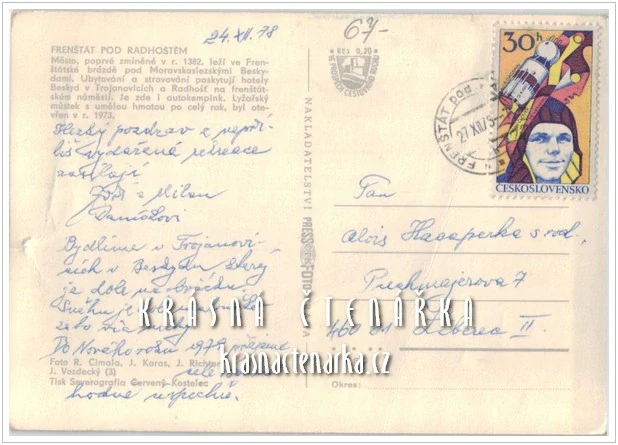 24. XII. 78
67,-
FRENŠTÁT POD RADHOŠTĚM
Město, poprvé zmíněné v r. 1382, leží ve Fren-
štátské brázdě pod Moravskoslezskými Besky-
dami. Ubytování a stravování poskytují hotely
Beskyd v Trojanovicích a Radhošť na frenštát-
ském náměstí. Je zde i autokempink. Lyžařský
můstek s umělou hmotou po celý rok, byl ote-
vřen v r. 1973.
Hezký pozdrav z
rekreace
zasílají
Milan
Bydlíme v Trojanovi-
cích v Beskydu
je dole
Sněhu je
Do Nového roku 1979 přejeme
hodně úspěchu.
Foto R. Cimala, J. Karas, J. Richter
J. Vozdecký (3)
Tisk Severografia Červený Kostelec
Kčs 0,20
NAKLADATELSTVÍ PRESSFOTO
30h
ČESKOSLOVENSKO
FRENŠTÁT POD
27 XII 75
Pan
Alois Hacaperka s rod.
Puchmajerova 7
460 01 Liberec II.
Okres:
KRÁSNÁ ČTENÁŘKA
krasnactenarka.cz